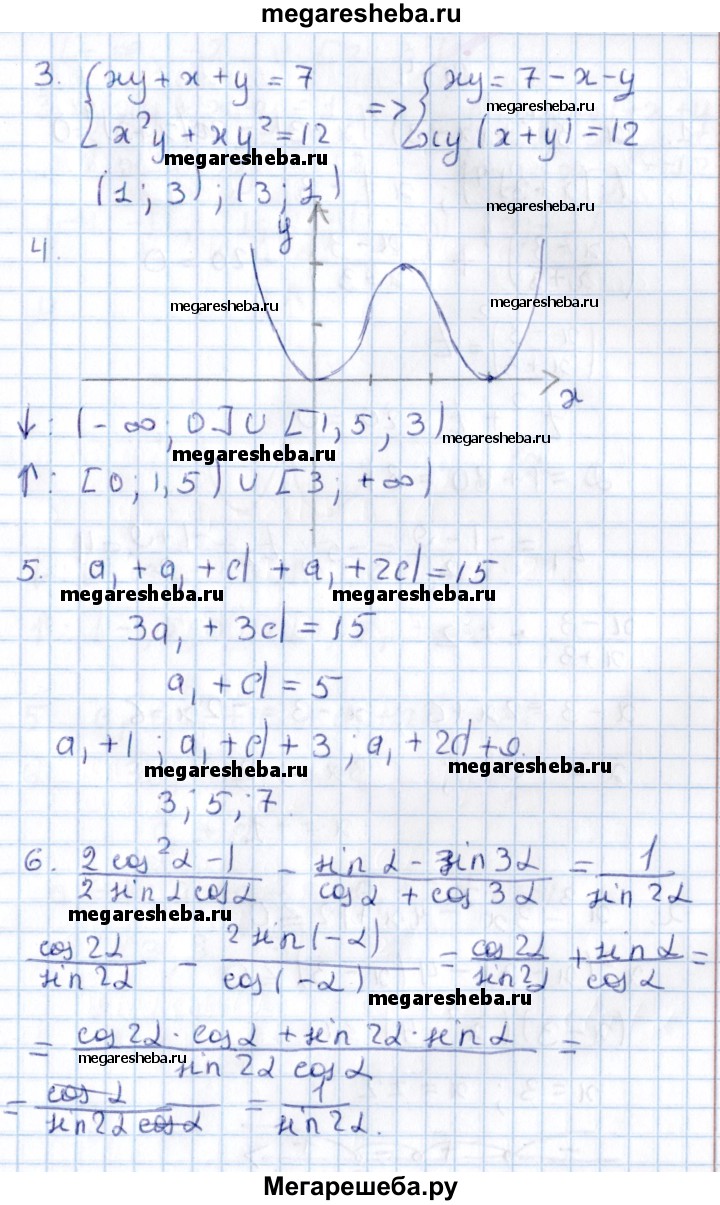 megaresheba.ru
3. { xy + x + y = 7 => { xy = 7 - x - y
megaresheba.ru
x²y + xy² = 12 xy (x + y) = 12
megaresheba.ru
(1; 3) ; (3; 1)
megaresheba.ru
4. y
megaresheba.ru megaresheba.ru
x
↓: (-∞; 0] ∪ [1,5; 3)
megaresheba.ru
megaresheba.ru
↑: [0; 1,5) ∪ [3; +∞)
5. a₁ + a₁ + d + a₁ + 2d = 15
megaresheba.ru megaresheba.ru
3a₁ + 3d = 15
a₁ + d = 5
a₁ + 1 ; a₁ + d + 3 ; a₁ + 2d + 9.
megaresheba.ru megaresheba.ru
3 ; 5 ; 7.
6. (2 cos²α - 1)/(2 sin α cos α) - (sin α - sin 3α)/(cos α + cos 3α) = 1/(sin 2α)
megaresheba.ru
(cos 2α)/(sin 2α) - (2 sin (-α))/(cos (-α)) = (cos 2α)/(sin 2α) + (sin α)/(cos α) =
megaresheba.ru
= (cos 2α · cos α + sin 2α · sin α)/(sin 2α cos α) =
megaresheba.ru
= (cos α)/(sin 2α cos α) = 1/(sin 2α).
Мегарешеба.ру